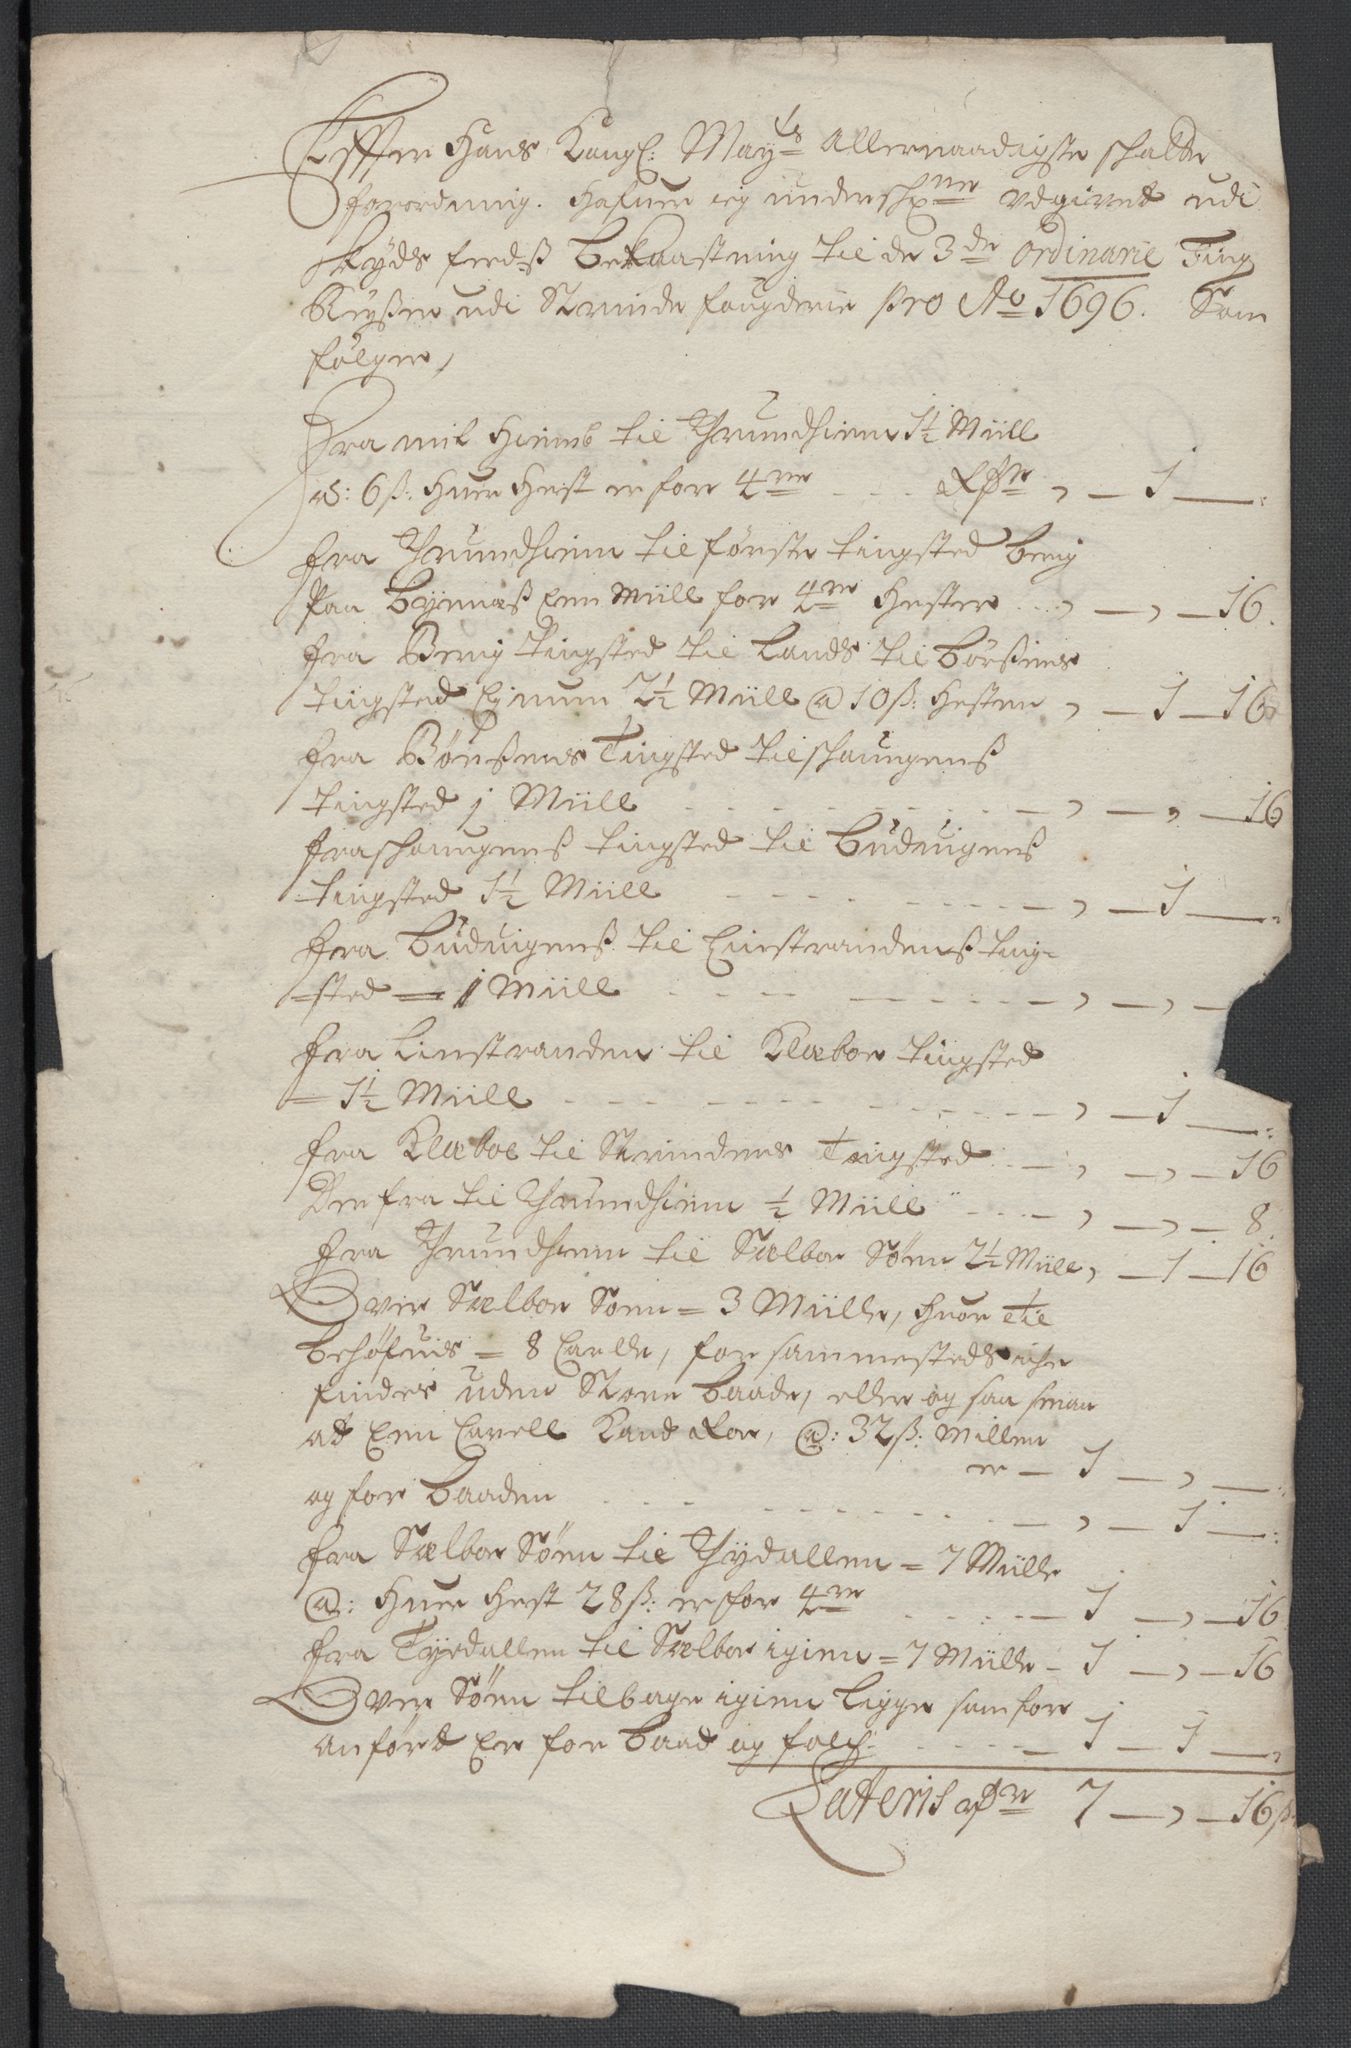 Effter Hans Kongl: May:ts Allernaadigste schatte
forordning. Hafuer ieg underschr:ne udgivet udi
schyds ferds bekaastning til de 3de Ordinarie Ting
Reyser udi Strinde fougderie pro Ao 1696. Som
følger,
Fra mit Hiemb til Thrundhiem 1½ Miill
a: 6 ß: huer Hest er for 4re - - - Rdr , — 1 —
fra Thrundhiem til første tingsted berg
Paa Býnæs Een Miill for 4re Hester ... , — , — 16.
fra Berg tingsted til Lands til Børsens
tingsted 2½ Miill @ 10 ß: Hesten , — 1 — 16
fra Børsens Tingsted til schaugens
tingsted 1 Miill - - - , — , — 16
fra schaugens tingsted til Buduigens
tingsted 1½ Miill - - - , — 1 —
fra Buduigens til Leinstrandens ting-
=sted — 1 Miill - - - , — , —
fra Linstranden til Klæboe tingsted
= 1½ Miill - - - , — 1 —
fra Klæboe til Strindens Tingsted - , — , — 16
Der fra til Thrundhiem ½ Miill - - , — , — 8.
fra Thrundhiem til Sælboe Søen 2½ Miill , — 1 — 16
Over Sælboe Søen = 3 Miille, huor til
behøfues = 8 Carlle, for sammesteds iche
findes uden Store baade, eller og saa smaa
at Een Carell Kand Roe, @: 32 ß: Millen
er — 1 — , —
og for Baaden - - - , — 1 —
fra Sælboe Søen til Thydallen = 7 Miille
@: huer Hest 28 ß: er for 4re - - - 1 — , — 16
fra Tydallen til Sælboe igien = 7 Miille - 1 — , — 16
Over Søen tilbage igien ligger som for
anført Er for baad og folch - - - 1 — 1 —
Lateris Rdr 7 — , — 16 ß